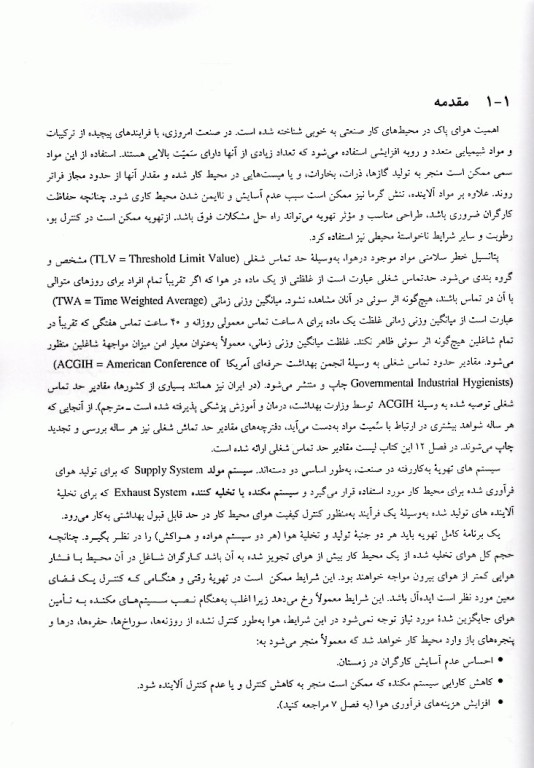 ۱-۱ مقدمه
اهمیت هوای پاک در محیط‌های کار صنعتی به خوبی شناخته شده است. در صنعت امروزی، با فرایندهای پیچیده از ترکیبات
و مواد شیمیایی متعدد و روبه افزایشی استفاده می‌شود که تعداد زیادی از آنها دارای سَمیّت بالایی هستند. استفاده از این مواد
سمی ممکن است منجر به تولید گازها، ذرات، بخارات، و یا میست‌هایی در محیط کار شده و مقدار آنها از حدود مجاز فراتر
روند. علاوه بر مواد آلاینده، تنش گرما نیز ممکن است سبب عدم آسایش و ناایمن شدن محیط کاری شود. چنانچه حفاظت
کارگران ضروری باشد، طراحی مناسب و مؤثر تهویه می‌تواند راه حل مشکلات فوق باشد. ازتهویه ممکن است در کنترل بو،
رطوبت و سایر شرایط ناخواستهٔ محیطی نیز استفاده کرد.
پتانسیل خطر سلامتی مواد موجود درهوا، به‌وسیلهٔ حد تماس شغلی (TLV = Threshold Limit Value) مشخص و
گروه بندی می‌شود. حدتماس شغلی عبارت است از غلظتی از یک ماده در هوا که اگر تقریباً تمام افراد برای روزهای متوالی
با آن در تماس باشند، هیچ‌گونه اثر سوئی در آنان مشاهده نشود. میانگین وزنی زمانی (TWA = Time Weighted Average)
عبارت است از میانگین وزنی زمانی غلظت یک ماده برای ۸ ساعت تماس معمولی روزانه و ۴۰ ساعت تماس هفتگی که تقریباً در
تمام شاغلین هیچ‌گونه اثر سوئی ظاهر نکند. غلظت میانگین وزنی زمانی، معمولاً به‌عنوان معیار امن میزان مواجههٔ شاغلین منظور
می‌شود. مقادیر حدود تماس شغلی به وسیلهٔ انجمن بهداشت حرفه‌ای آمریکا (ACGIH = American Conference of
Governmental Industrial Hygienists) چاپ و منتشر می‌شود. (در ایران نیز همانند بسیاری از کشورها، مقادیر حد تماس
شغلی توصیه شده به وسیلهٔ ACGIH توسط وزارت بهداشت، درمان و آموزش پزشکی پذیرفته شده است ـ مترجم). از آنجایی که
هر ساله شواهد بیشتری در ارتباط با سُمیت مواد به‌دست می‌آید، دفترچه‌های مقادیر حد تماش شغلی نیز هر ساله بررسی و تجدید
چاپ می‌شوند. در فصل ۱۲ این کتاب لیست مقادیر حد تماس شغلی ارائه شده است.
سیستم های تهویهٔ به‌کاررفته در صنعت، به‌طور اساسی دو دسته‌اند. سیستم مولد Supply System که برای تولید هوای
فرآوری شده برای محیط کار مورد استفاده قرار می‌گیرد و سیستم مکنده یا تخلیه کننده Exhaust System که برای تخلیهٔ
آلاینده های تولید شده به‌وسیلهٔ یک فرآیند به‌منظور کنترل کیفیت هوای محیط کار در حد قابل قبول بهداشتی به‌کار می‌رود.
یک برنامهٔ کامل تهویه باید هر دو جنبهٔ تولید و تخلیهٔ هوا (هر دو سیستم هواده و هواکش) را در نظر بگیرد. چنانچه
حجم کل هوای تخلیه شده از یک محیط کار بیش از هوای تجویز شده به آن باشد کارگران شاغل در آن محیط با فشار
هوایی کمتر از هوای بیرون مواجه خواهند بود. این شرایط ممکن است در تهویهٔ رقتی و هنگامی که کنترل یک فضای
معین مورد نظر است ایده‌آل باشد. این شرایط معمولاً رخ می‌دهد زیرا اغلب به‌هنگام نصب سیستم‌های مکنده به تأمین
هوای جایگزین شدهٔ مورد نیاز توجه نمی‌شود در این شرایط، هوا به‌طور کنترل نشده از روزنه‌ها، سوراخ‌ها، حفره‌ها، درها و
پنجره‌های باز وارد محیط کار خواهد شد که معمولاً منجر می‌شود به:
• احساس عدم آسایش کارگران در زمستان.
• کاهش کارایی سیستم مکنده که ممکن است منجر به کاهش کنترل و یا عدم کنترل آلاینده شود.
• افزایش هزینه‌های فرآوری هوا (به فصل ۷ مراجعه کنید).